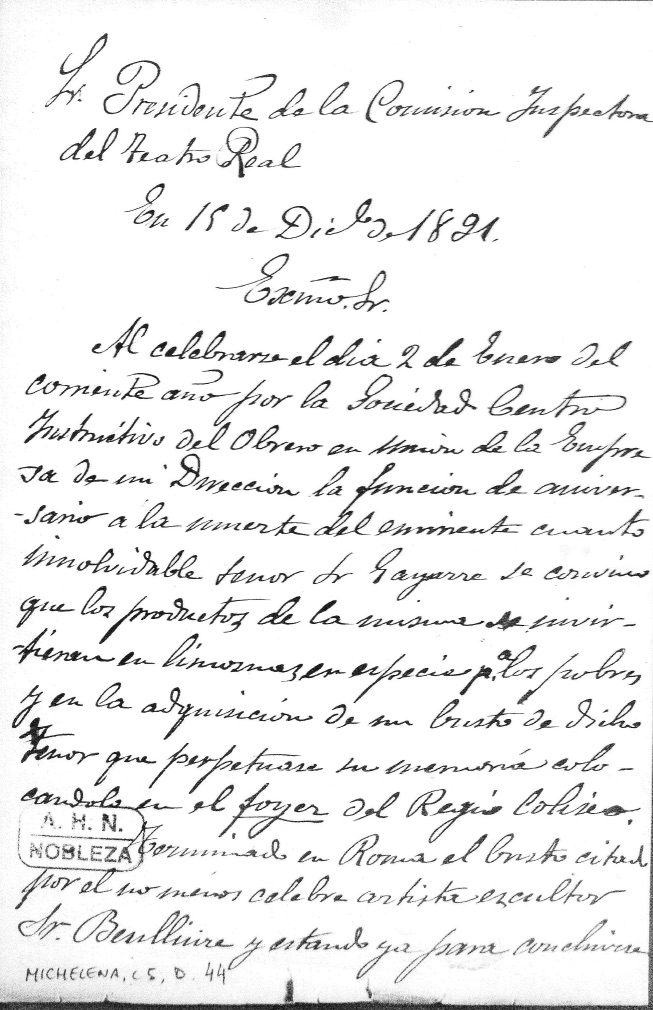 Sr. Presidente de la Comision Inspectora
del Teatro Real
En 15 de Dicbe de 1891.
Exmo. Sr.
Al celebrarse el dia 2 de Enero del
corriente año por la Sociedad Centro
Instructivo del Obrero en union de la Empre
sa de mi Direccion la funcion de aniver-
-sario a la muerte del eminente cuanto
innolvidable tenor Sr Gayarre se convino
que los productos de la misma se invir-
-tieran en limosnas en especie p.ª los pobres
y en la adquisicion de un busto de dicho
tenor que perpetuase su memoria colo-
candolo en el foyer del Regio Coliseo.
Terminado en Roma el busto citado
por el no menos celebre artista escultor
Sr. Benlliure y estando ya para concluirse
A. H. N.
NOBLEZA
MICHELENA, C 5, D. 44